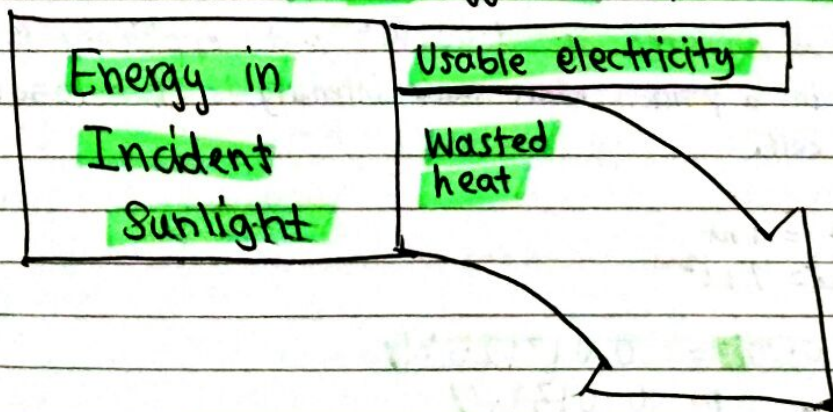 Energy in
Incident
Sunlight
Usable electricity
Wasted
heat